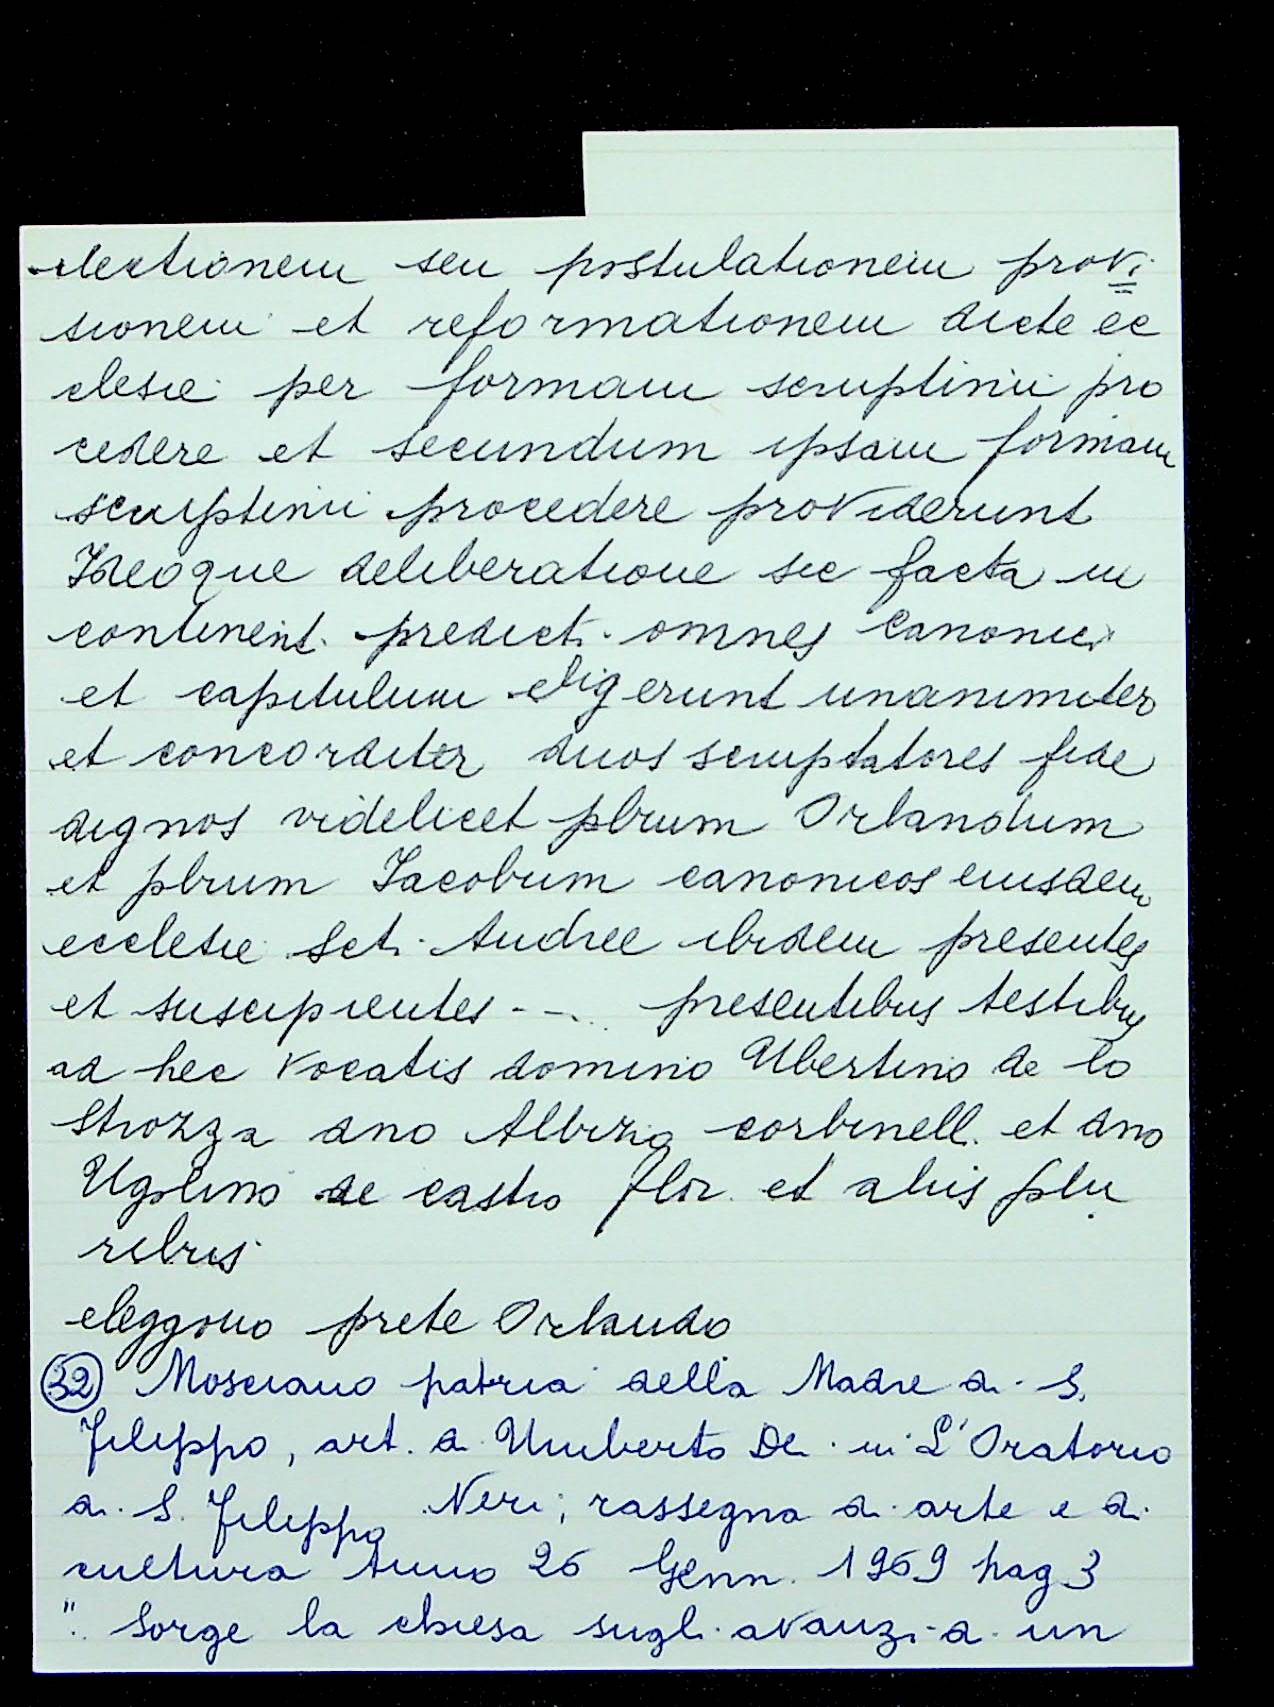 electionem seu postulationem provi
sionem et reformationem dicte ec
clesie per formam scruptinii pro
cedere et secundum ipsam formam
scruptinii procedere providerunt
Ideoque deliberatione sic facta in
continent. predicti omnes canonici
et capitulum eligerunt unanimiter
et concorditer duos scruptatores fide
dignos videlicet pbrum Orlandum
et pbrum Iacobum canonicos eiusdem
ecclesie Scti Andree ibidem presentes
et suscipientes --... presentibus testibus
ad hec vocatis domino Ubertino de lo
Strozza dno Albizio corbinell. et dno
Ugolino de castro flor. et aliis plu
ribus
eleggono prete Orlando
(32) Mosciano patria della Madre di S.
Filippo, art. di Umberto Dei in L'Oratorio
di S. Filippo Neri; rassegna di arte e di
cultura Anno 26 Genn. 1969 pag 3
".. Sorge la chiesa sugli avanzi di un